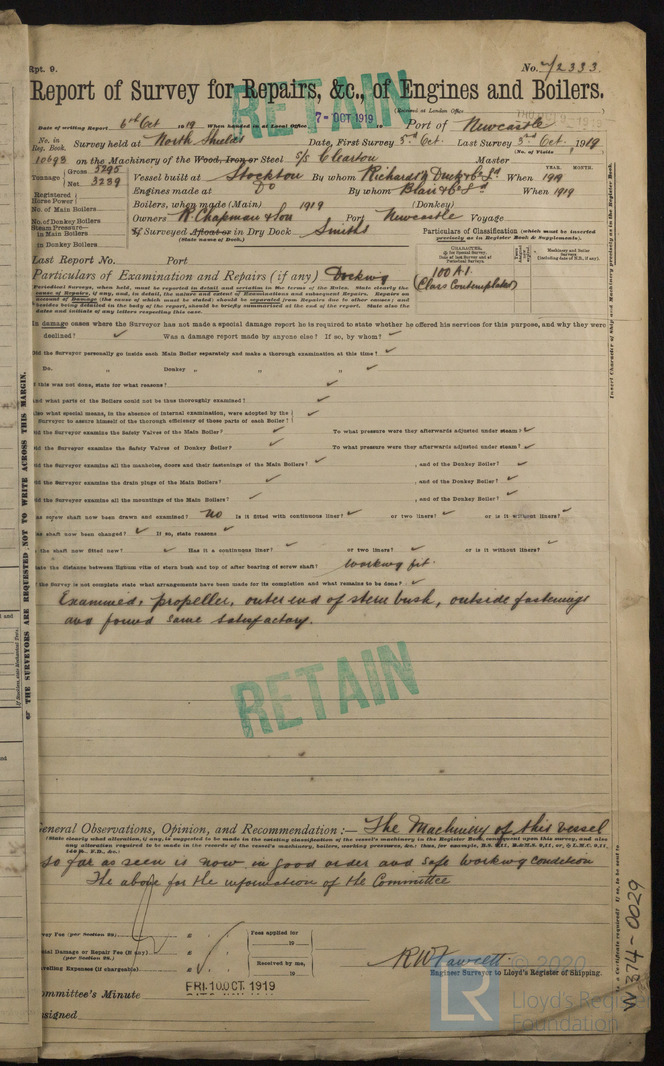 Rpt. 9.
No. 72333.
Report of Survey for Repairs, &c., of Engines and Boilers.
RETAIN
(Received at London Office
Date of writing Report 6th Oct 1919 When handed in at Local Office 7-OCT 1919 Port of Newcastle
No. in Reg. Book. Survey held at North Shields Date, First Survey 3rd Oct. Last Survey 3rd Oct. 1919
(No. of Visits
10693 on the Machinery of the Wood, Iron or Steel S/S Clearton Master
Tonnage Gross 5295 Net 3239
Vessel built at Stockton By whom Richardson Duck & Co Ld When 1919
YEAR. MONTH.
Engines made at Do By whom Blair & Co Ld When 1919
Registered Horse Power
Boilers, when made (Main) 1919 (Donkey)
No. of Main Boilers
Owners R. Chapman & Son Port Newcastle Voyage
No. of Donkey Boilers
Steam Pressure—
in Main Boilers
in Donkey Boilers
If Surveyed Afloat or in Dry Dock Smiths
(State name of Dock.)
Particulars of Classification (which must be inserted precisely as in Register Book & Supplements).
100 A.1.
(Class Contemplated)
Last Report No. Port
Particulars of Examination and Repairs (if any) Docking
Periodical Surveys, when held, must be reported in detail and seriatim in the terms of the Rules. State clearly the
causes of Repairs, if any, and, in detail, the nature and extent of Examinations and subsequent Repairs. Repairs on
account of Damage (the cause of which must be stated) should be separated from Repairs due to other causes; and
besides being detailed in the body of the report, should be briefly summarised at the end of the report. State also the
dates and initials of any letters respecting this case.
In damage cases where the Surveyor has not made a special damage report he is required to state whether he offered his services for this purpose, and why they were
declined? Was a damage report made by anyone else? If so, by whom?
Did the Surveyor personally go inside each Main Boiler separately and make a thorough examination at this time?
Do. " Donkey " " "
If this was not done, state for what reasons?
And what parts of the Boilers could not be thus thoroughly examined?
Also what special means, in the absence of internal examination, were adopted by the
Surveyor to assure himself of the thorough efficiency of those parts of each Boiler?
Did the Surveyor examine the Safety Valves of the Main Boiler? To what pressure were they afterwards adjusted under steam?
Did the Surveyor examine the Safety Valves of Donkey Boiler? To what pressure were they afterwards adjusted under steam?
Did the Surveyor examine all the manholes, doors and their fastenings of the Main Boilers? , and of the Donkey Boiler?
Did the Surveyor examine the drain plugs of the Main Boilers? , and of the Donkey Boiler?
Did the Surveyor examine all the mountings of the Main Boilers? , and of the Donkey Boiler?
Has screw shaft now been drawn and examined? No Is it fitted with continuous liner? or two liners? or is it without liners?
Has shaft now been changed? If so, state reasons
Is the shaft now fitted new? Has it a continuous liner? or two liners? or is it without liners?
State the distance between lignum vitæ of stern bush and top of after bearing of screw shaft? Working fit.
If the Survey is not complete state what arrangements have been made for its completion and what remains to be done?
Examined: propeller, outer end of stern bush, outside fastenings
and found same satisfactory.
RETAIN
General Observations, Opinion, and Recommendation:— The Machinery of this vessel
(State clearly what alteration, if any, is suggested to be made in the existing classification of the vessel's machinery in the Register Book consequent upon this survey, and also
any alteration required to be made in the records of the vessel's machinery, boilers, working pressures, &c.
so far as seen is now in good order and safe working condition
The above for the information of the Committee
Survey Fee (per Section 29) £ Fees applied for
Special Damage or Repair Fee (if any) £ 19
(per Section 29.)
Received by me,
Travelling Expenses (if chargeable) £ 19
R W Fawcett.
Engineer Surveyor to Lloyd's Register of Shipping.
Committee's Minute FRI. 10 OCT 1919
Assigned
THE SURVEYORS ARE REQUESTED NOT TO WRITE ACROSS THIS MARGIN.
W374-0029
© 2020
LR
Lloyd's Register
Foundation